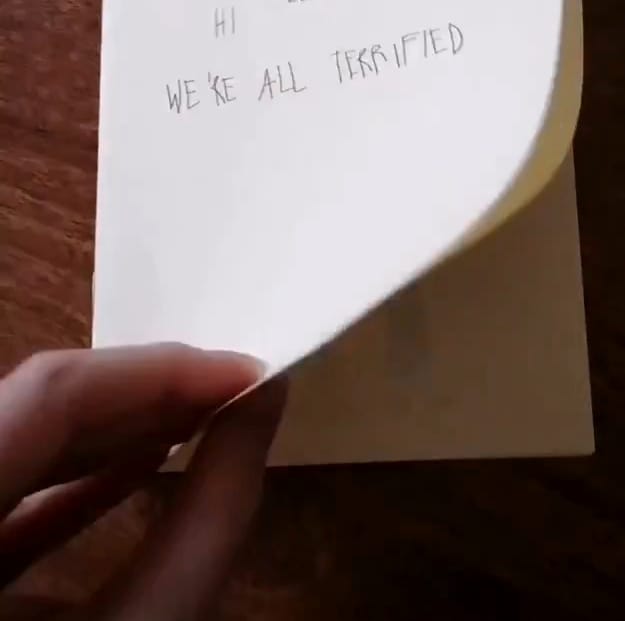 HI
WE'RE ALL TERRIFIED